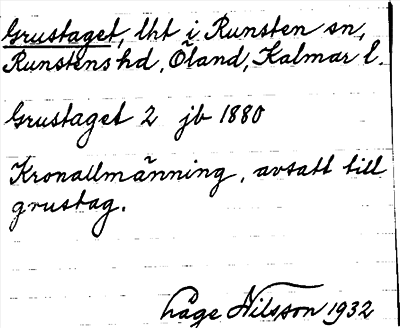 Grustaget, lht i Runsten sn,
Runstens hd, Öland, Kalmar l.
Grustaget 2 jb 1880
Kronallmänning, avsatt till
grustag.
Åage Nilsson 1932